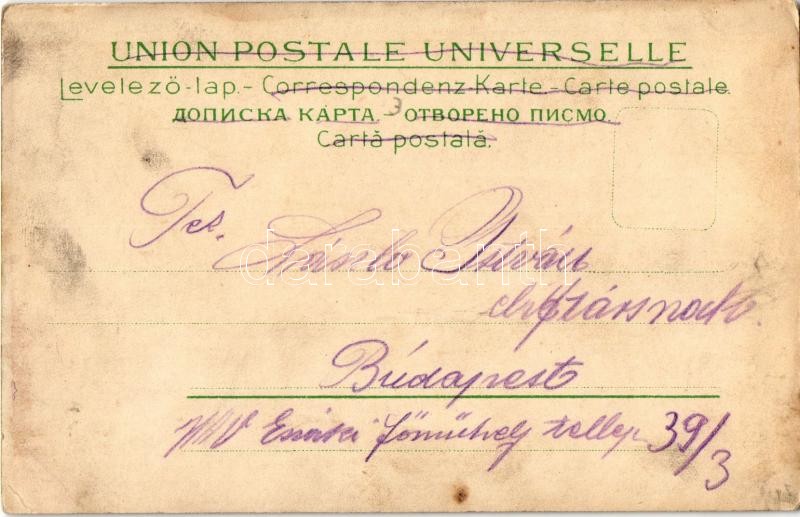 UNION POSTALE UNIVERSELLE
Levelező-lap.- Correspondenz-Karte.-Carte postale.
ДОПИСКА КАРТА - ОТВОРЕНО ПИСМО.
Cartă postală.
Tek. László István
Budapest
Északi főműhely 39/3
darabanth